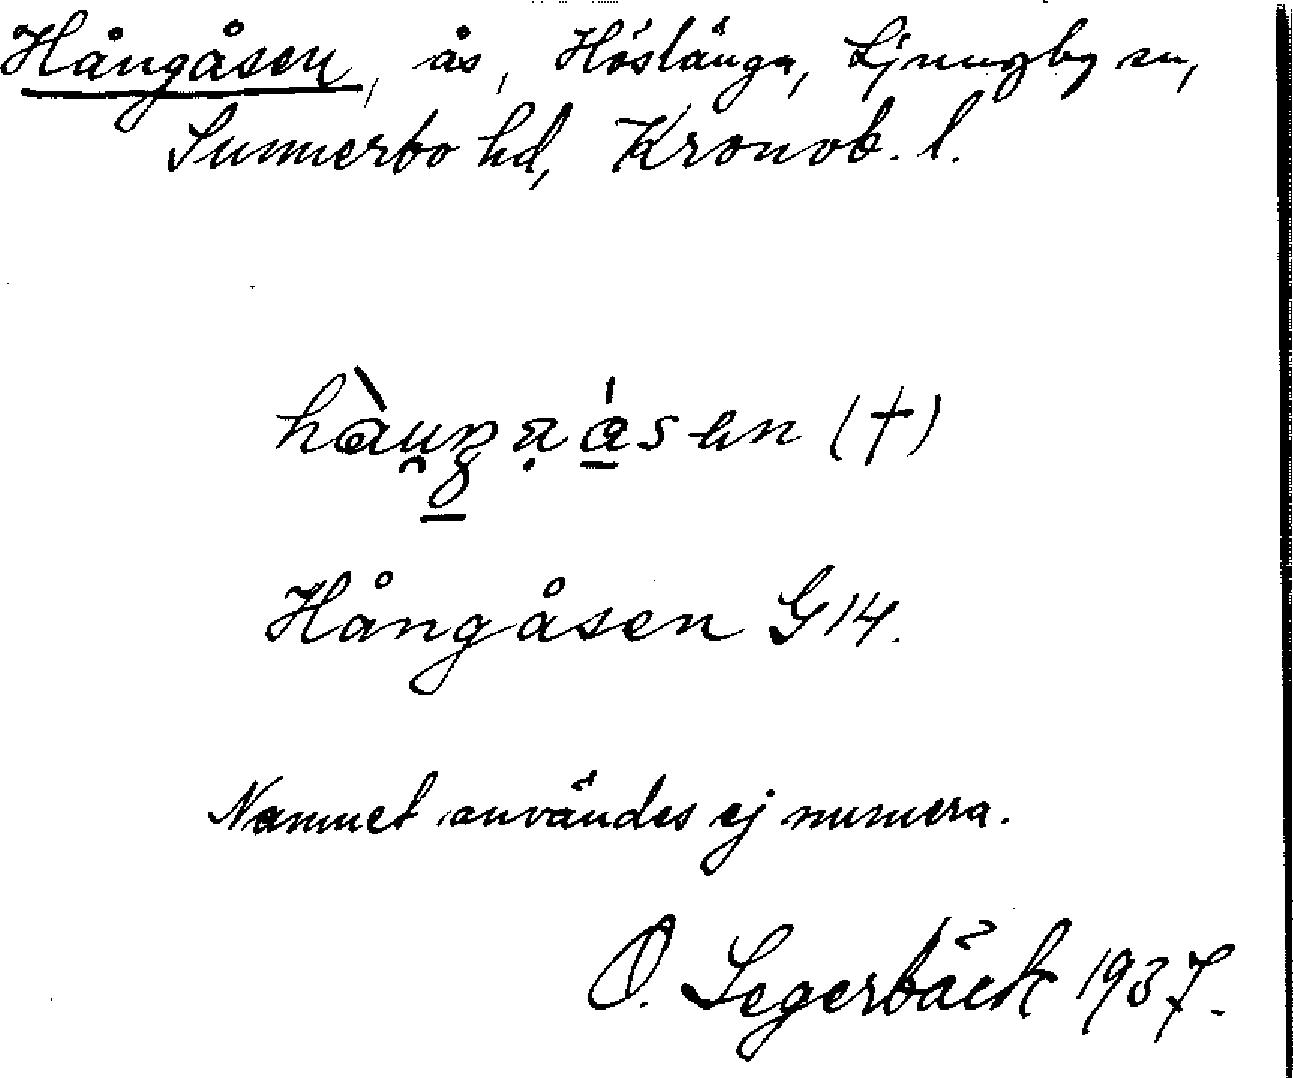 Hångåsen, ås, Höslänga, Ljungby sn,
Sunnerbo hd, Kronob. l.
(†)
Hångåsen G 14.
Namnet användes ej numera.
O. Segerbäck 1937.